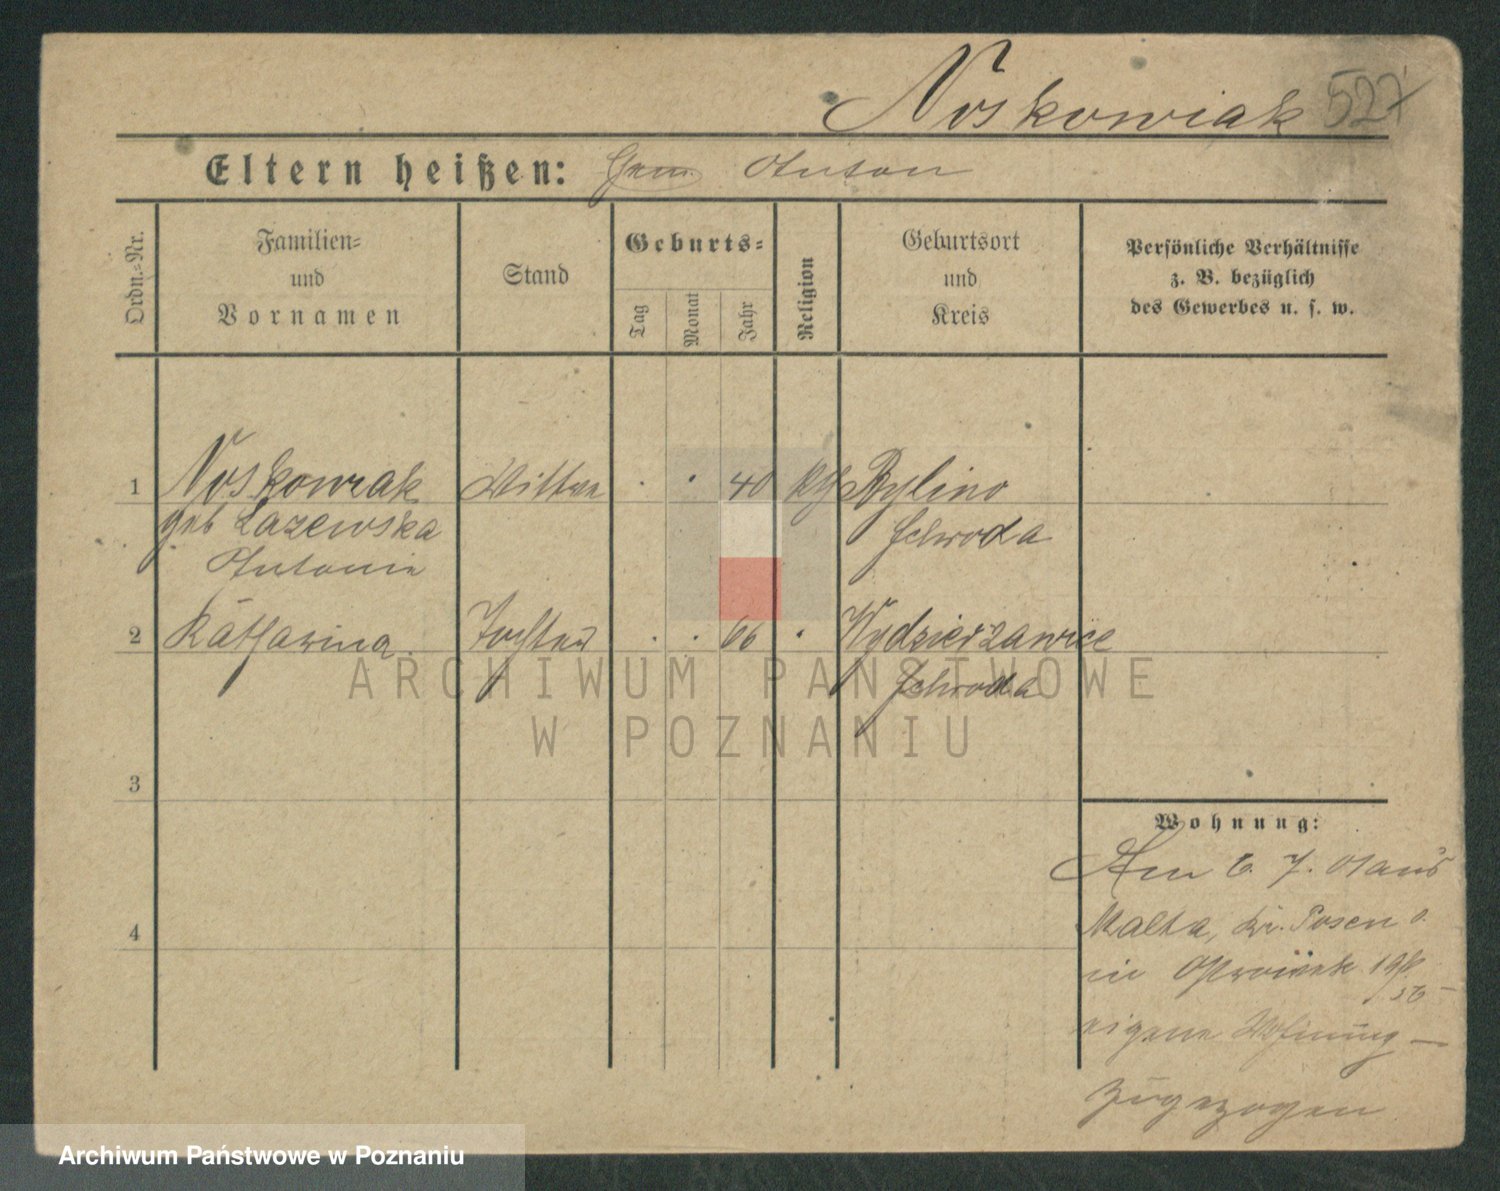 Noskowiak 527
Eltern heißen: Anton
Ordn.-Nr.
Familien-
und
Vornamen
Stand
Geburts-
Tag
Monat
Jahr
Religion
Geburtsort
und
Kreis
Persönliche Verhältnisse
z. B. bezüglich
des Gewerbes u. s. w.
1 Noskowiak Wittwe 40 kth Bylino
geb Lazewska Schroda
Antonie
2 Katharina Tochter 66 Wydzierzawice
Schroda
3
4
Wohnung:
Am 6. 7. 01 aus
Malta, Kr. Posen
in Ostrówek 19
eigene Wohnung —
zugezogen
ARCHIWUM PAŃSTWOWE
W POZNANIU
Archiwum Państwowe w Poznaniu